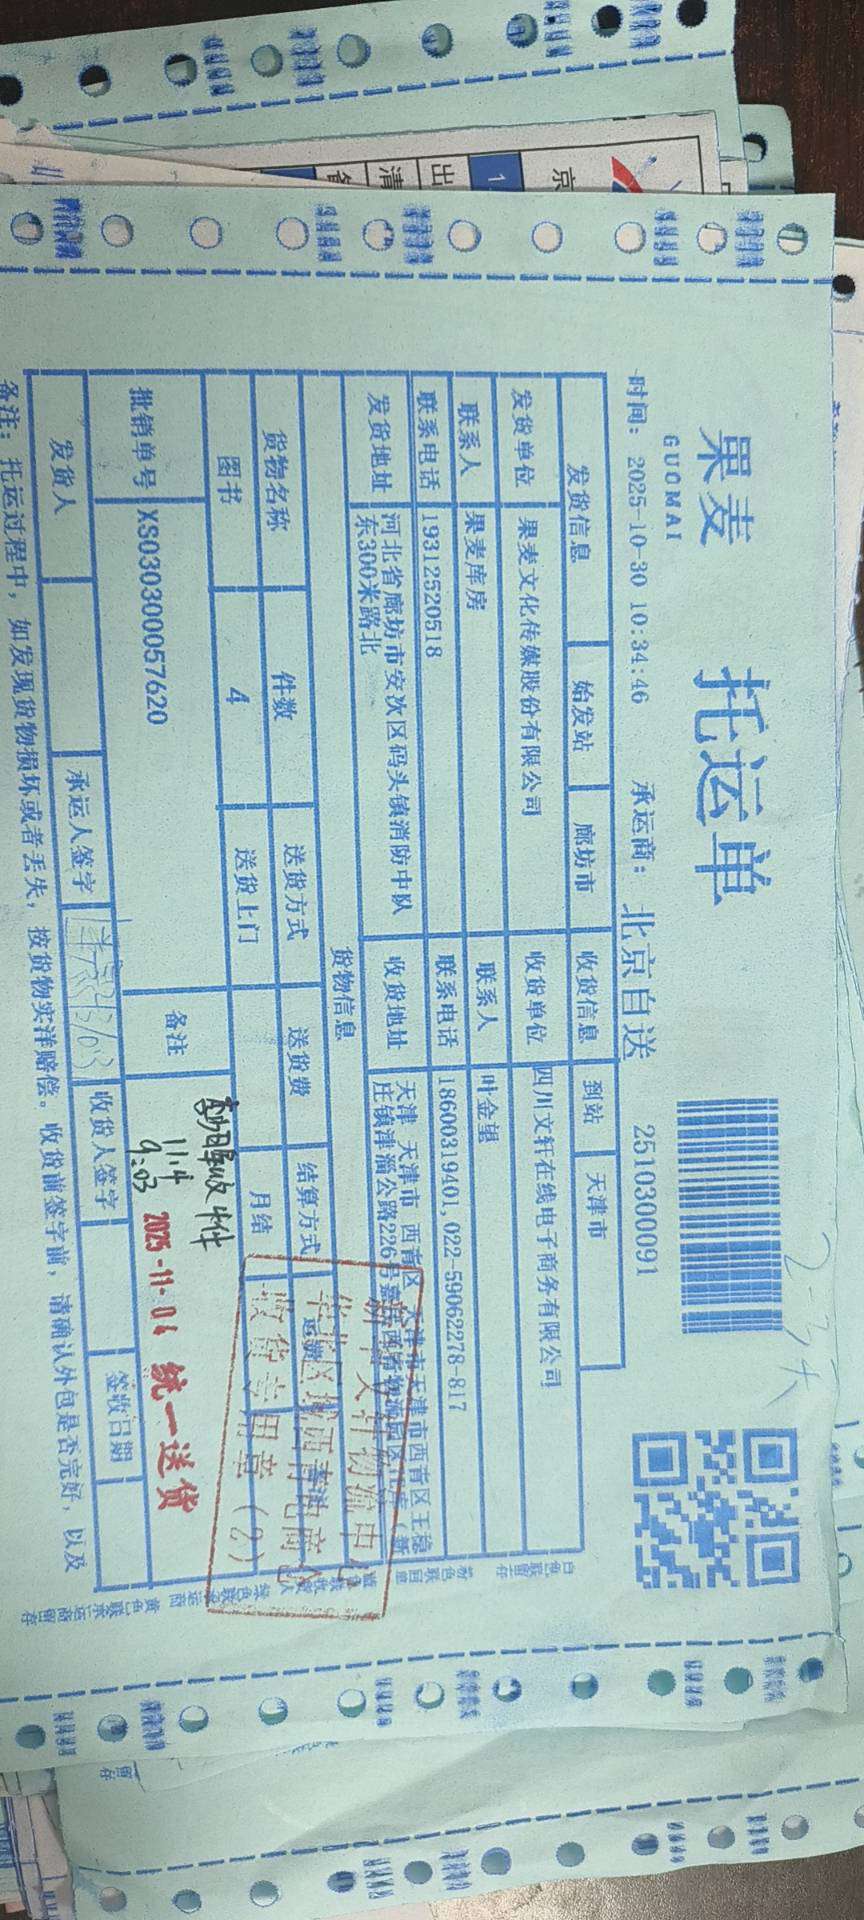 果麦
GUOMAI
托运单
时间: 2025-10-30 10:34:46 承运商: 北京自送 2510300091
发货信息 始发站 廊坊市 收货信息 到站 天津市
发货单位 果麦文化传媒股份有限公司 收货单位 四川文轩在线电子商务有限公司
联系人 果麦库房 联系人 叶金望
联系电话 19312520518 联系电话 18600319401,022-59062278-817
发货地址 河北省廊坊市安次区码头镇消防中队东300米路北 收货地址 天津 天津市 西青区 天津市天津市西青区王稳庄镇津淄公路226号
货物信息
货物名称 件数 送货方式 送货费 结算方式
图书 4 送货上门 月结
批销单号 XS030300057620 备注
收4件
11.4
9:03
2025-11-04 统一送货
收货专用章(2)
发货人 承运人签字 收货人签字 签收日期
备注: 托运过程中, 如发现货物损坏或者丢失, 按货物实洋赔偿。收货前签字前, 请确认外包是否完好, 以及